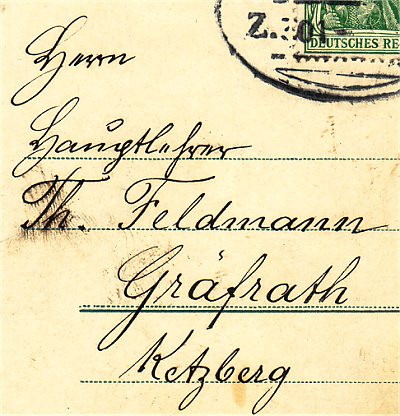 Z. 301
DEUTSCHES RE
Herrn
Hauptlehrer
Th. Feldmann
Gräfrath
Ketzberg